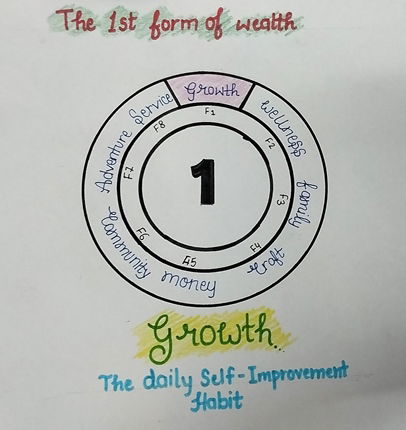 The 1st form of wealth
Growth
Wellness
family
Craft
money
Community
Adventure
Service
F1
F2
F3
F4
A5
F6
F7
F8
1
Growth..
The daily Self-Improvement
Habit